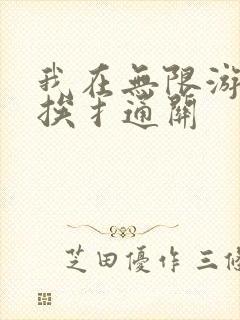 我在無限游
挨才通關
芝田優作 三條